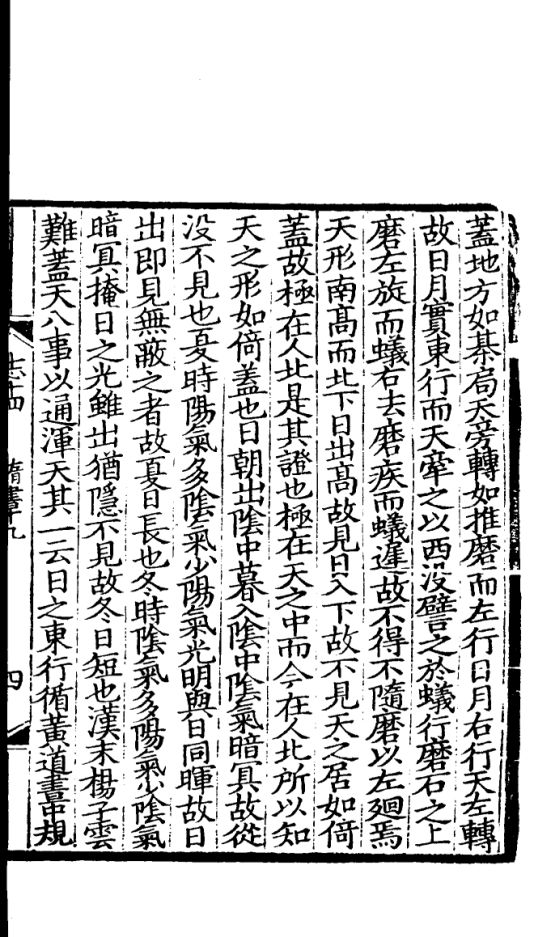 蓋地方如棊局天旁轉如推磨而左行日月右行天左轉
故日月實東行而天牽之以西没譬之於蟻行磨石之上
磨左旋而蟻右去磨疾而蟻遲故不得不隨磨以左廻焉
天形南髙而北下日出髙故見日入下故不見天之居如倚
蓋故極在人北是其證也極在天之中而今在人北所以知
天之形如倚蓋也日朝出陰中暮入陰中陰氣暗冥故從
没不見也夏時陽氣多陰氣少陽氣光明與日同暉故日
出即見無蔽之者故夏日長也冬時陰氣多陽氣少陰氣
暗冥掩日之光雖出猶隱不見故冬日短也漢末楊子雲
難蓋天八事以通渾天其一云日之東行循黃道晝中規
志十四 隋書十九 四